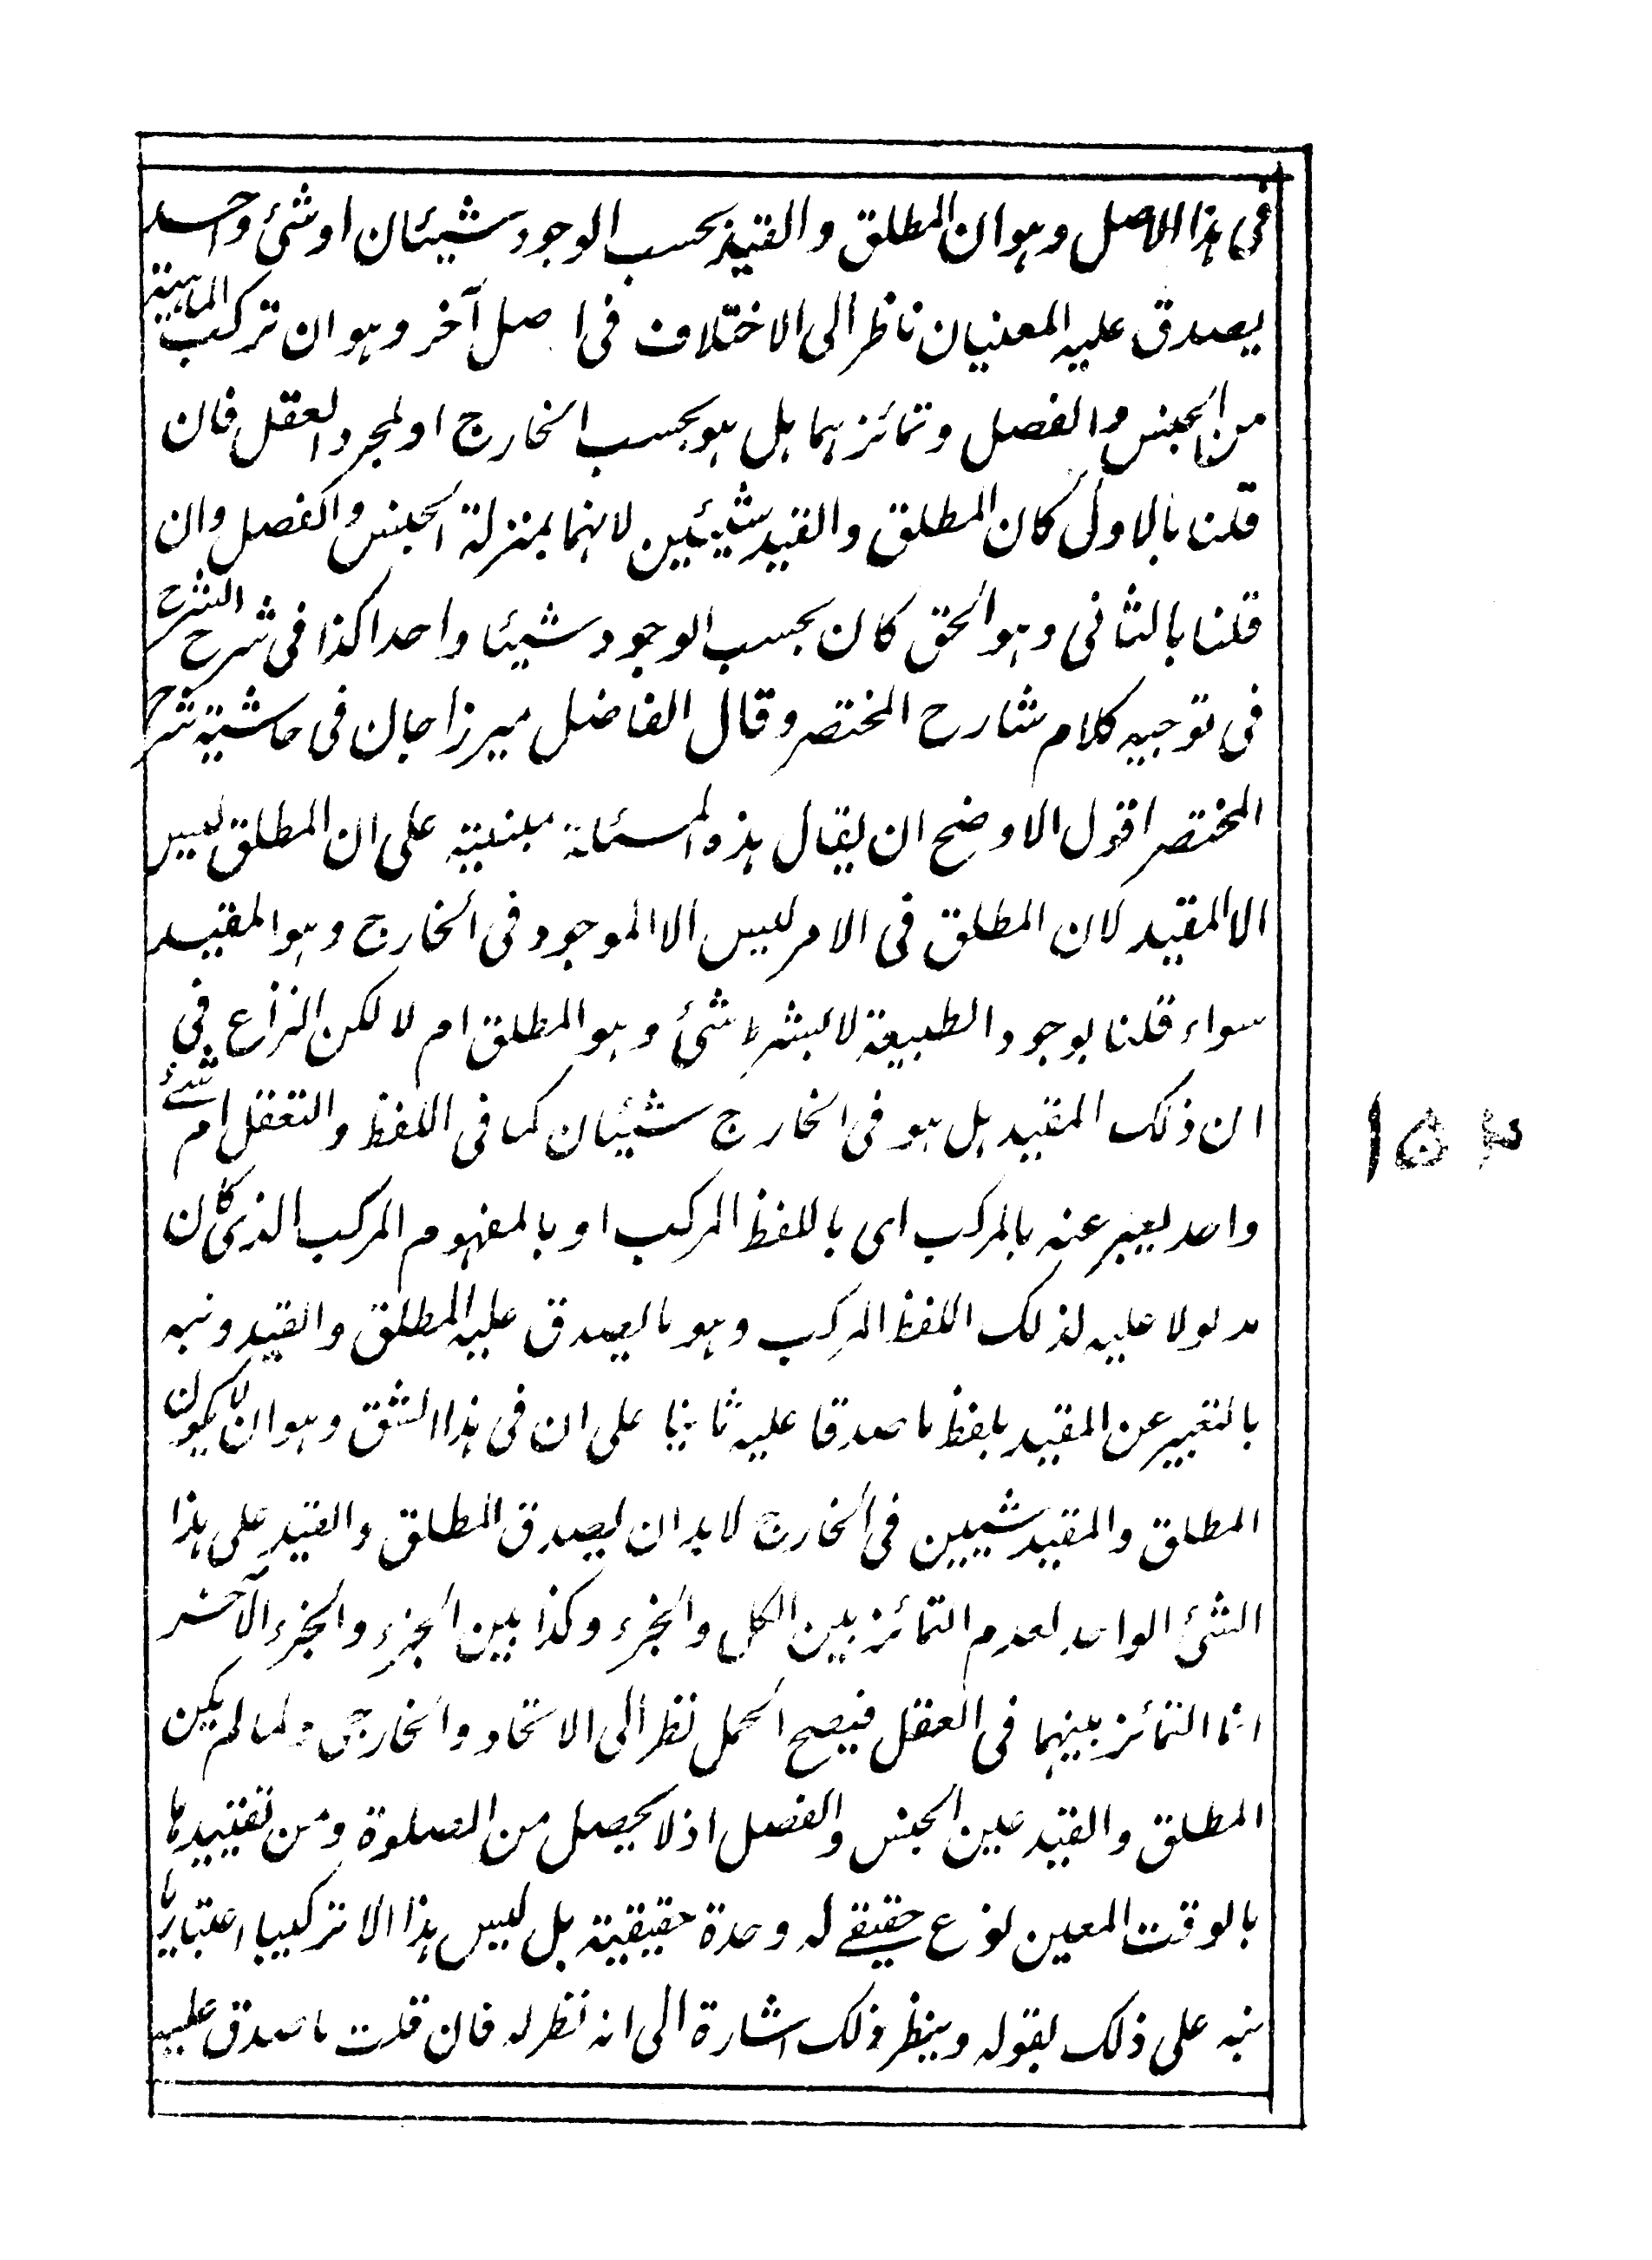 فى هذا الاصل وهو ان المطلق والقيد بحسب الوجود شيئان او شئ واحد
يصدق عليه المعنيان ناظر الى الاختلاف فى اصل آخر وهو ان تركب الماهية
من الجنس والفصل وتمائزهما هل هو بحسب الخارج او لمجرد العقل فان
قلنا بالاول كان المطلق والقيد شيئين لانهما بمنزلة الجنس والفصل وان
قلنا بالثانى وهو الحق كان بحسب الوجود شيئا واحدا كذا فى شرح الشرح
فى توجيه كلام شارح المختصر وقال الفاضل ميرزا جان فى حاشية شرح
المختصر اقول الاوضح ان يقال هذه المسئلة مبنية على ان المطلق ليس
الا المقيد لان المطلق فى الامر ليس الا الموجود فى الخارج وهو المقيد
سواء قلنا بوجود الطبيعة لا بشرط شئ وهو المطلق ام لا لكن النزاع فى
ان ذلك المقيد هل هو فى الخارج شيئان كما فى اللفظ والتعقل ام شئ
واحد يعبر عنه بالمركب اى باللفظ المركب او بالمفهوم المركب الذى كان
مدلولا عليه لذلك اللفظ المركب وهو ما يصدق عليه المطلق والقيد ونبه
بالتعبير عن المقيد بلفظ ما صدقا عليه ثانيا على ان فى هذا الشق وهو ان لا يكون
المطلق والمقيد شيئين فى الخارج لا بد ان يصدق المطلق والقيد على هذا
الشئ الواحد لعدم التمائز بين الكل والجزء وكذا بين الجزء والجزء الآخر
انما التمائز بينهما فى العقل فيصح الحمل نظرا الى الاتحاد والخارجى ولما لم يكن
المطلق والقيد عين الجنس والفصل اذ لا يحصل من الصلوة ومن تقييدها
بالوقت المعين نوع حقيقى له وحدة حقيقية بل ليس هذا الا تركيبا اعتباريا
نبه على ذلك بقوله وينظر ذلك اشارة الى انه نظر له فان قلت ما صدق عليه